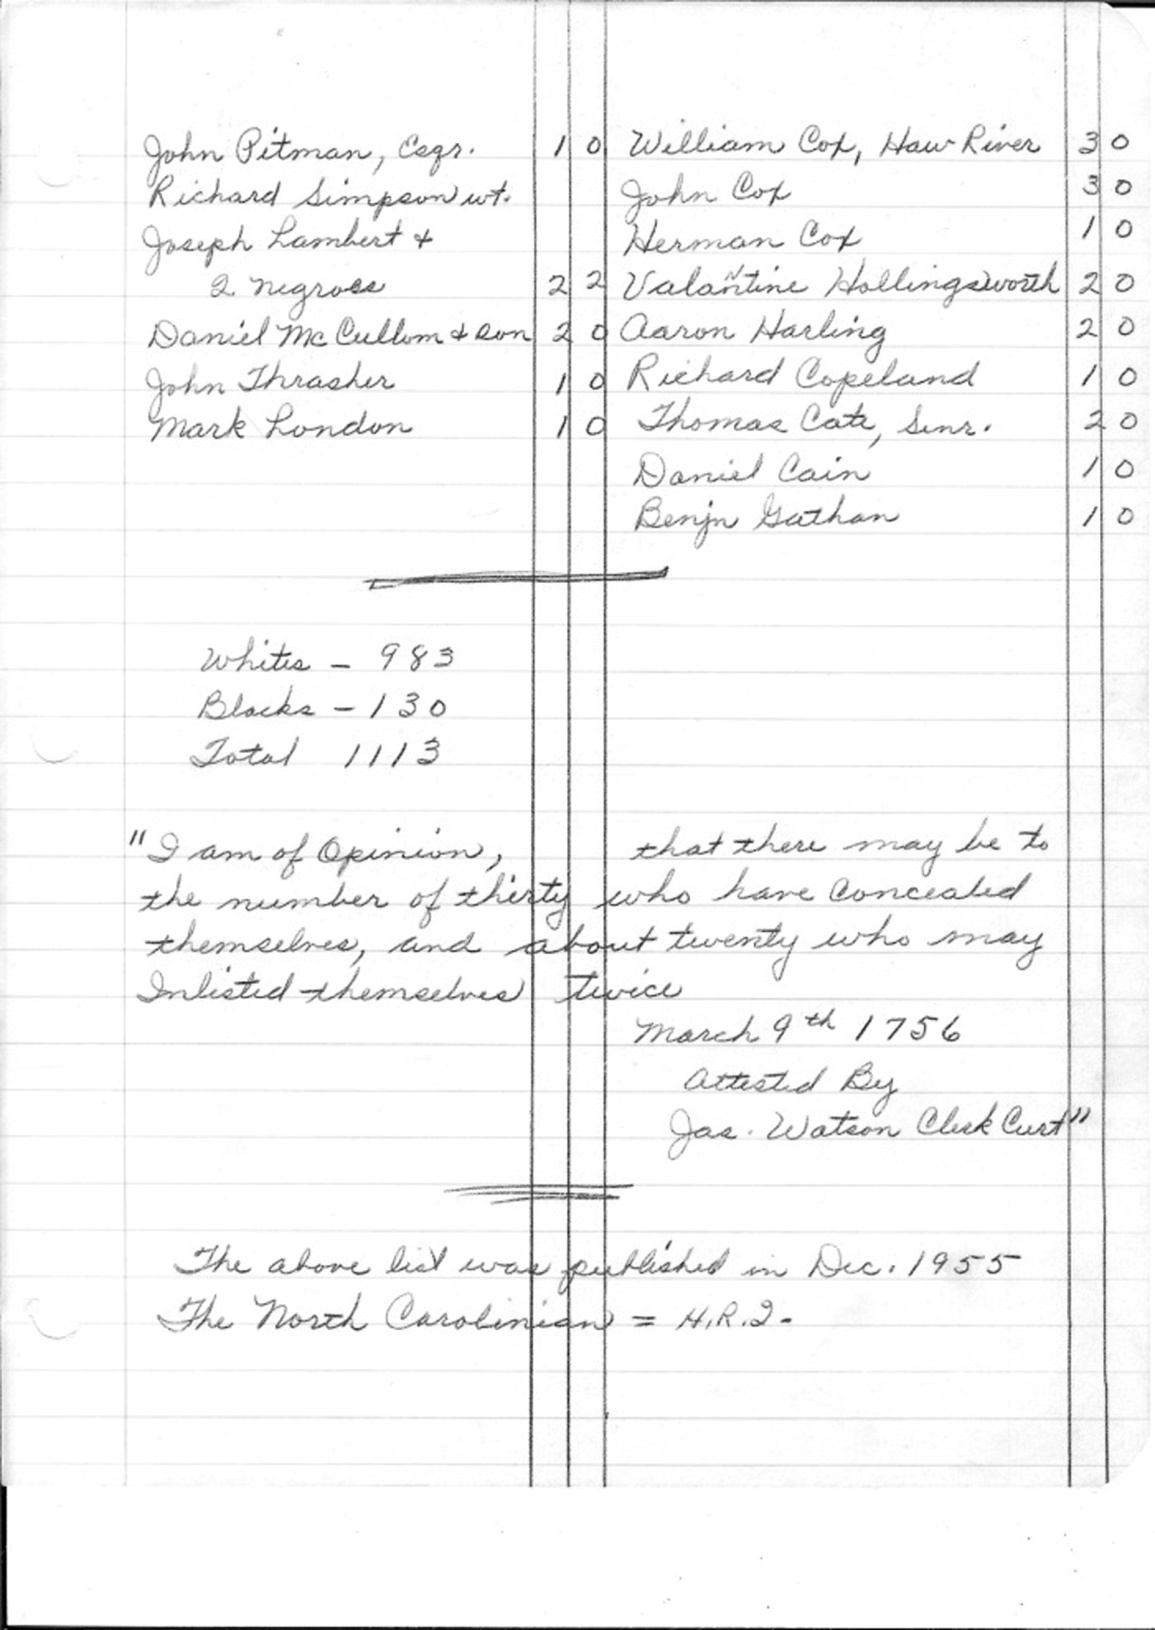 John Pitman, Esqr. 1 0
Richard Simpson wt.
Joseph Lambert +
2 negroes 2 2
Daniel McCullom + son 2 0
John Thrasher 1 0
Mark London 1 0
William Cox, Haw River 3 0
John Cox 3 0
Herman Cox 1 0
Valantine Hollingsworth 2 0
Aaron Harling 2 0
Richard Copeland 1 0
Thomas Cate, Senr. 2 0
Daniel Cain 1 0
Benjn Gathan 1 0
Whites - 983
Blacks - 130
Total 1113
"I am of Opinion, that there may be to
the number of thirty who have Concealed
themselves, and about twenty who may
Inlisted themselves twice
March 9th 1756
Attested By
Jas. Watson Clerk Curt"
The above list was published in Dec. 1955
The North Carolinian = H.R.2-